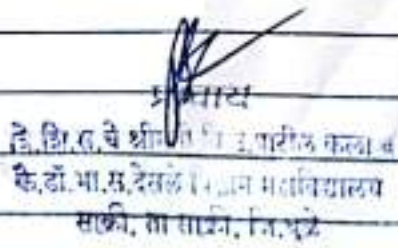 प्राचार्य
वि.शि.स.चे श्री पाटील कला व
कै.डॉ.भा.स.देसले विज्ञान महाविद्यालय
साक्री, ता साक्री, जि.धुळे